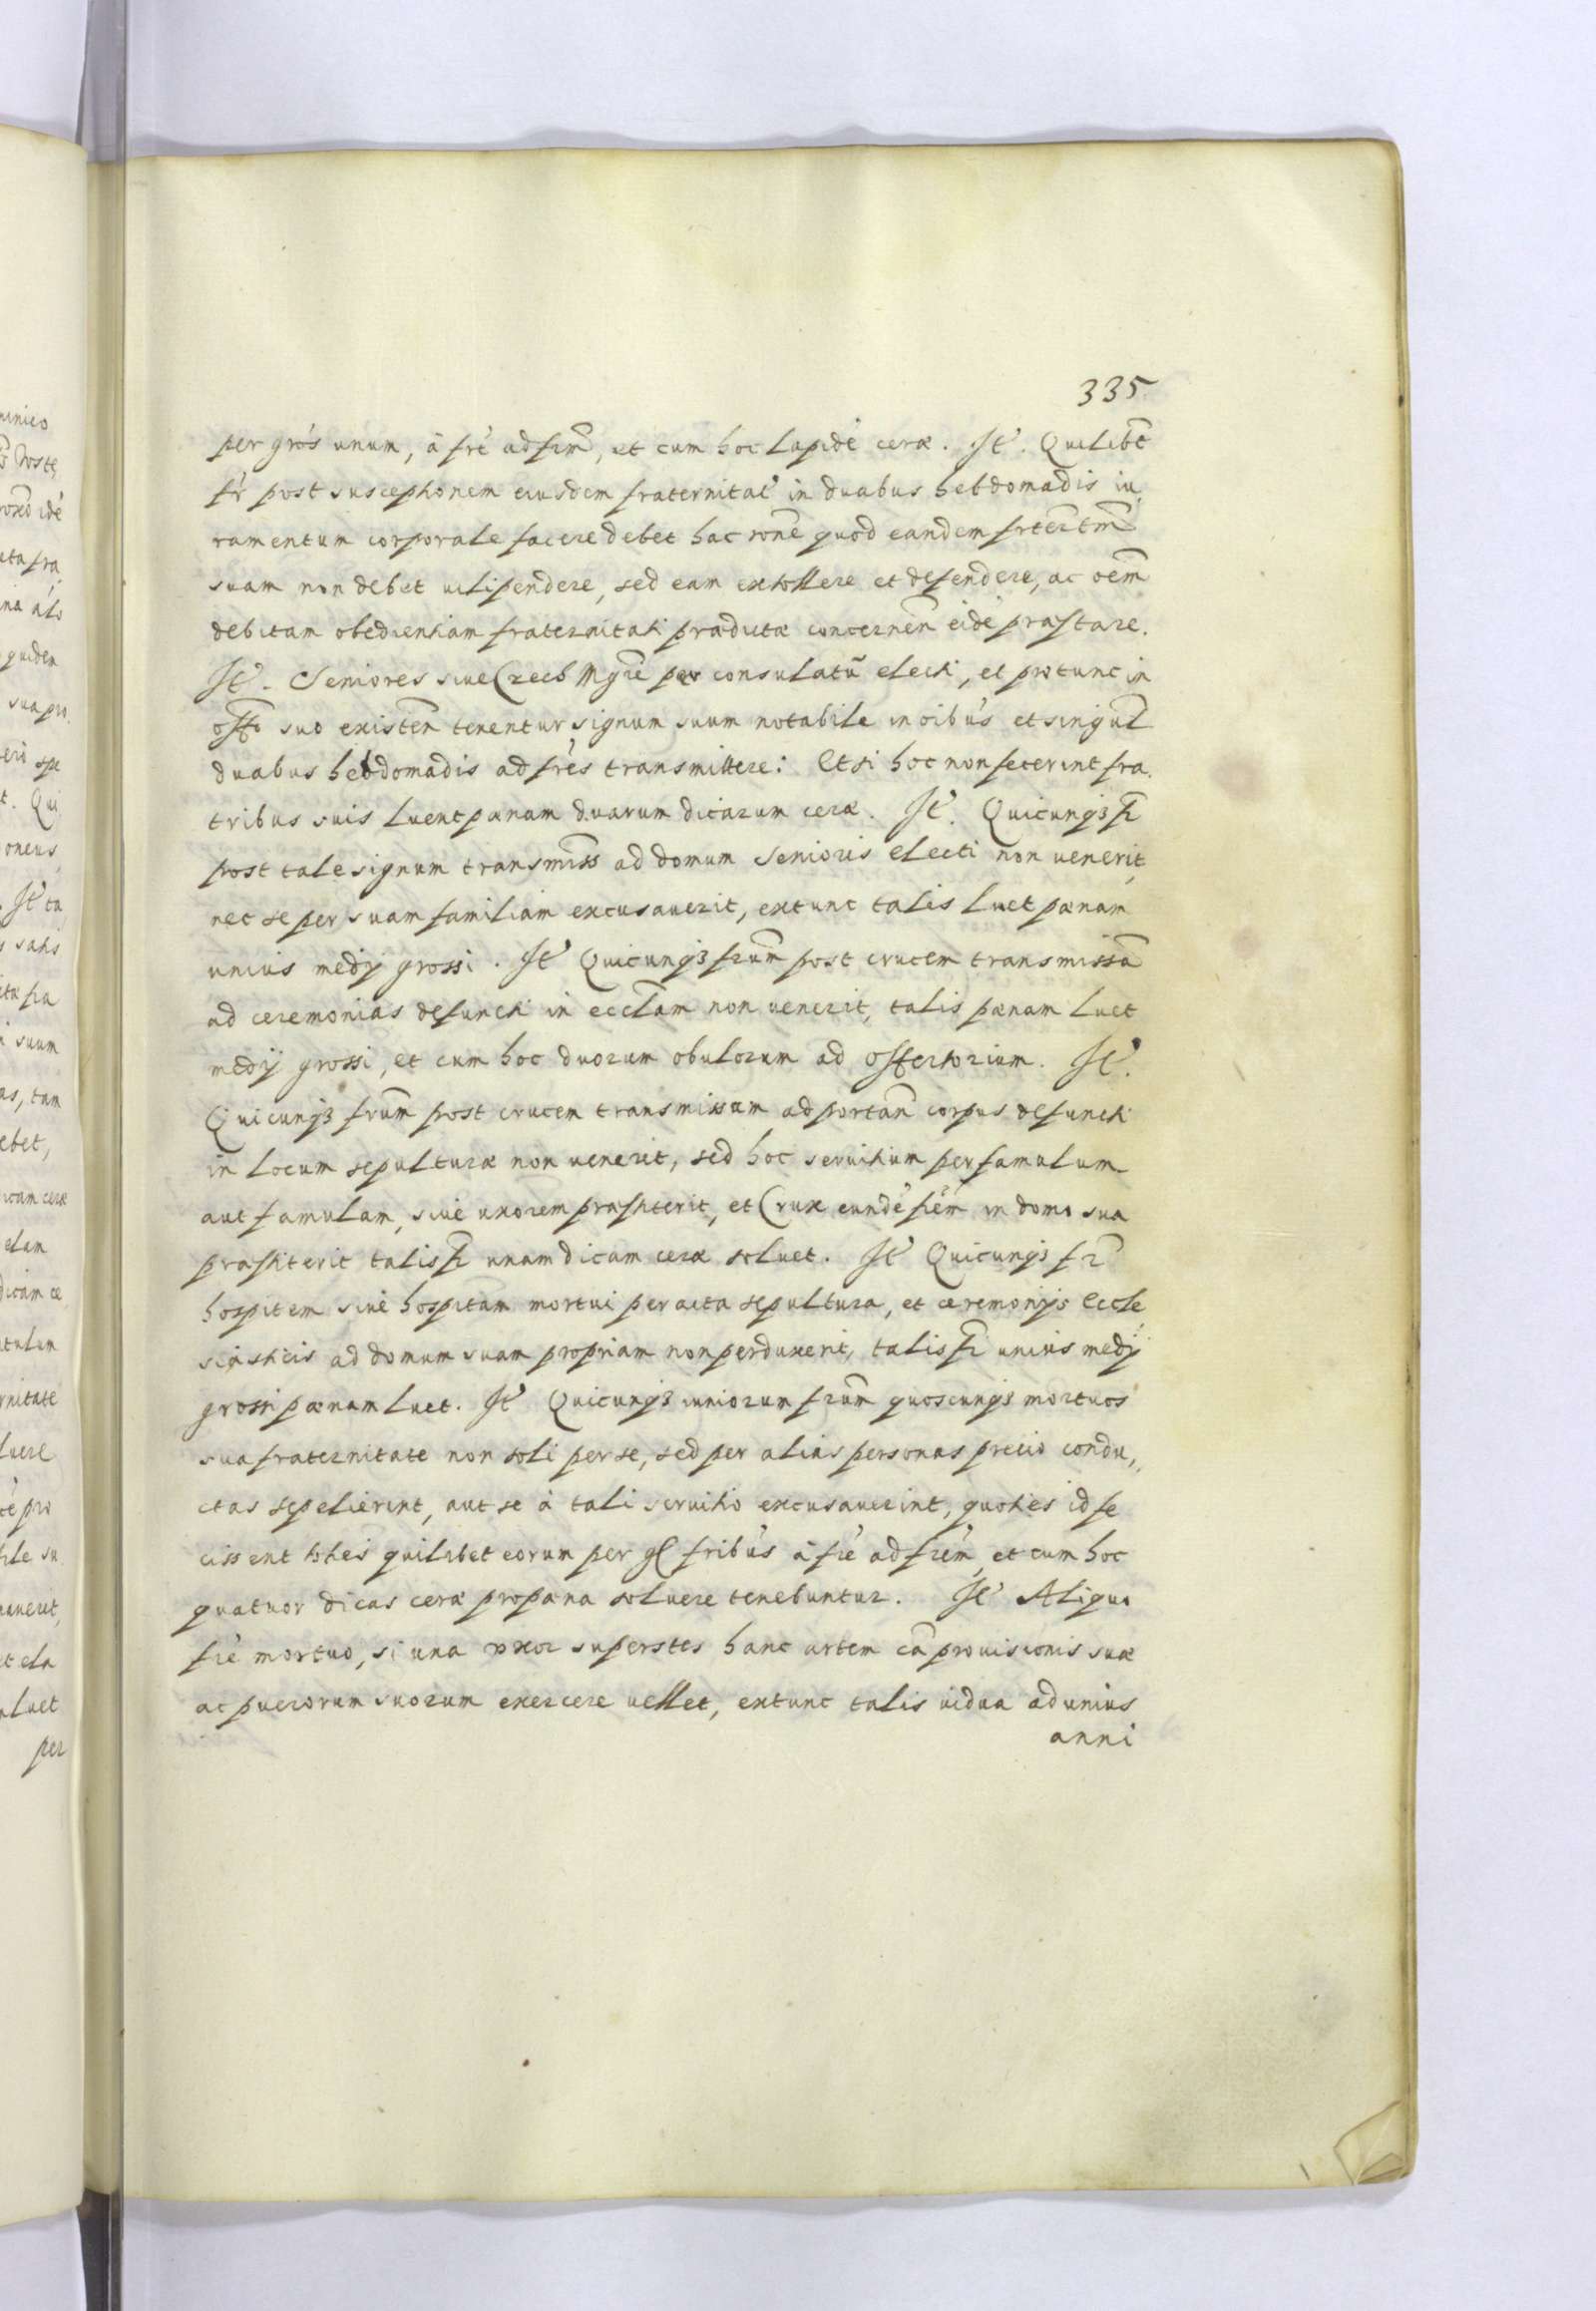 335
per grós unum, à frē ad frēm, et cum hoc lapidē ceræ. Itē. Quilibēt
fr̄ post susceptionem eiusdem fraternitat̄ in duabus hebdomadis iu,
ramentum corporale facere debet hac ronē quod eandem frtertm̄
suam non debet vilipendere, sed eam extollere et defendere, ac oēm
debitam obedientiam fraternitati prædictæ concernen̄ eidē præstare.
Itē. Seniores siue Czech Mgrē per consulatū electi, et protunc in
offō suo existen̄ tenentur signum suum notabile in oībūs et singul̄
duabus hebdomadis ad frēs transmittere: Et si hoc non fecerint fra,
tribus suis luent pœnam duarum dicarum ceræ. Itē. Quicunqȝ fr̄
post tale signum transmiss̄ ad domum senioris electi non uenerit,
nec se per suam familiam excusauerit, extunc talis luet pœnam
unius medij grossi. Itē Quicunqȝ frūm post crucem transmissā
ad ceremonias defuncti in eccłam non uenerit, talis pœnam luet
medij grossi, et cum hoc duorum obulorum ad offertorium. Itē.
Quicunqȝ frūm post crucem transmissam ad portan̄ corpus defuncti
in locum sepulturæ non uenerit, sed hoc seruitium per famulum
aut famulam, siue uxorem præstiterit, et Crux eundē frēm in domo sua
præstiterit talis fr̄ unam dicam ceræ soluet. Itē Quicunqȝ fr̄
hospitem siue hospitam mortui peracta sepultura, et ceremonijs Eccle,
siasticis ad domum suam propriam non perduxerit, talis fr̄ unius medij
grossi pœnam luet. Itē Quicunqȝ iuniorum frūm quoscunqȝ mortuos
sua fraternitate non soli per se, sed per alias personas precio condu,,
ctas sepelierint, aut se à tali seruitio excusauerint, quoties id fe
cissent toties quilibet eorum per gł fribūs à frē ad frēm, et cum hoc
quatuor dicas ceræ pro pœna soluere tenebuntur. Itē Aliquo
frē mortuo, si una uxor superstes hanc artem cā prouisionis suæ
ac puerorum suorum exercere uellet, extunc talis uidua ad unius
anni